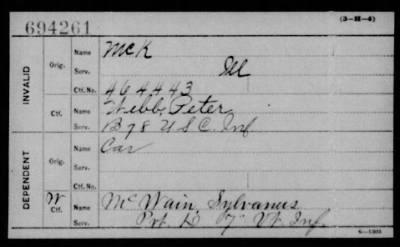 694261
(3-H-4)
INVALID
Orig.
Name McK
Serv. Ill
Ctf. No. 464443
Ctf.
Name Webb, Peter
Serv. B 78 U S C. Inf
DEPENDENT
Orig.
Name Car
Serv.
Ctf. No.
W Ctf.
Name McWain, Sylvanus
Serv. Pvt. D 7" Vt Inf.
6—1303